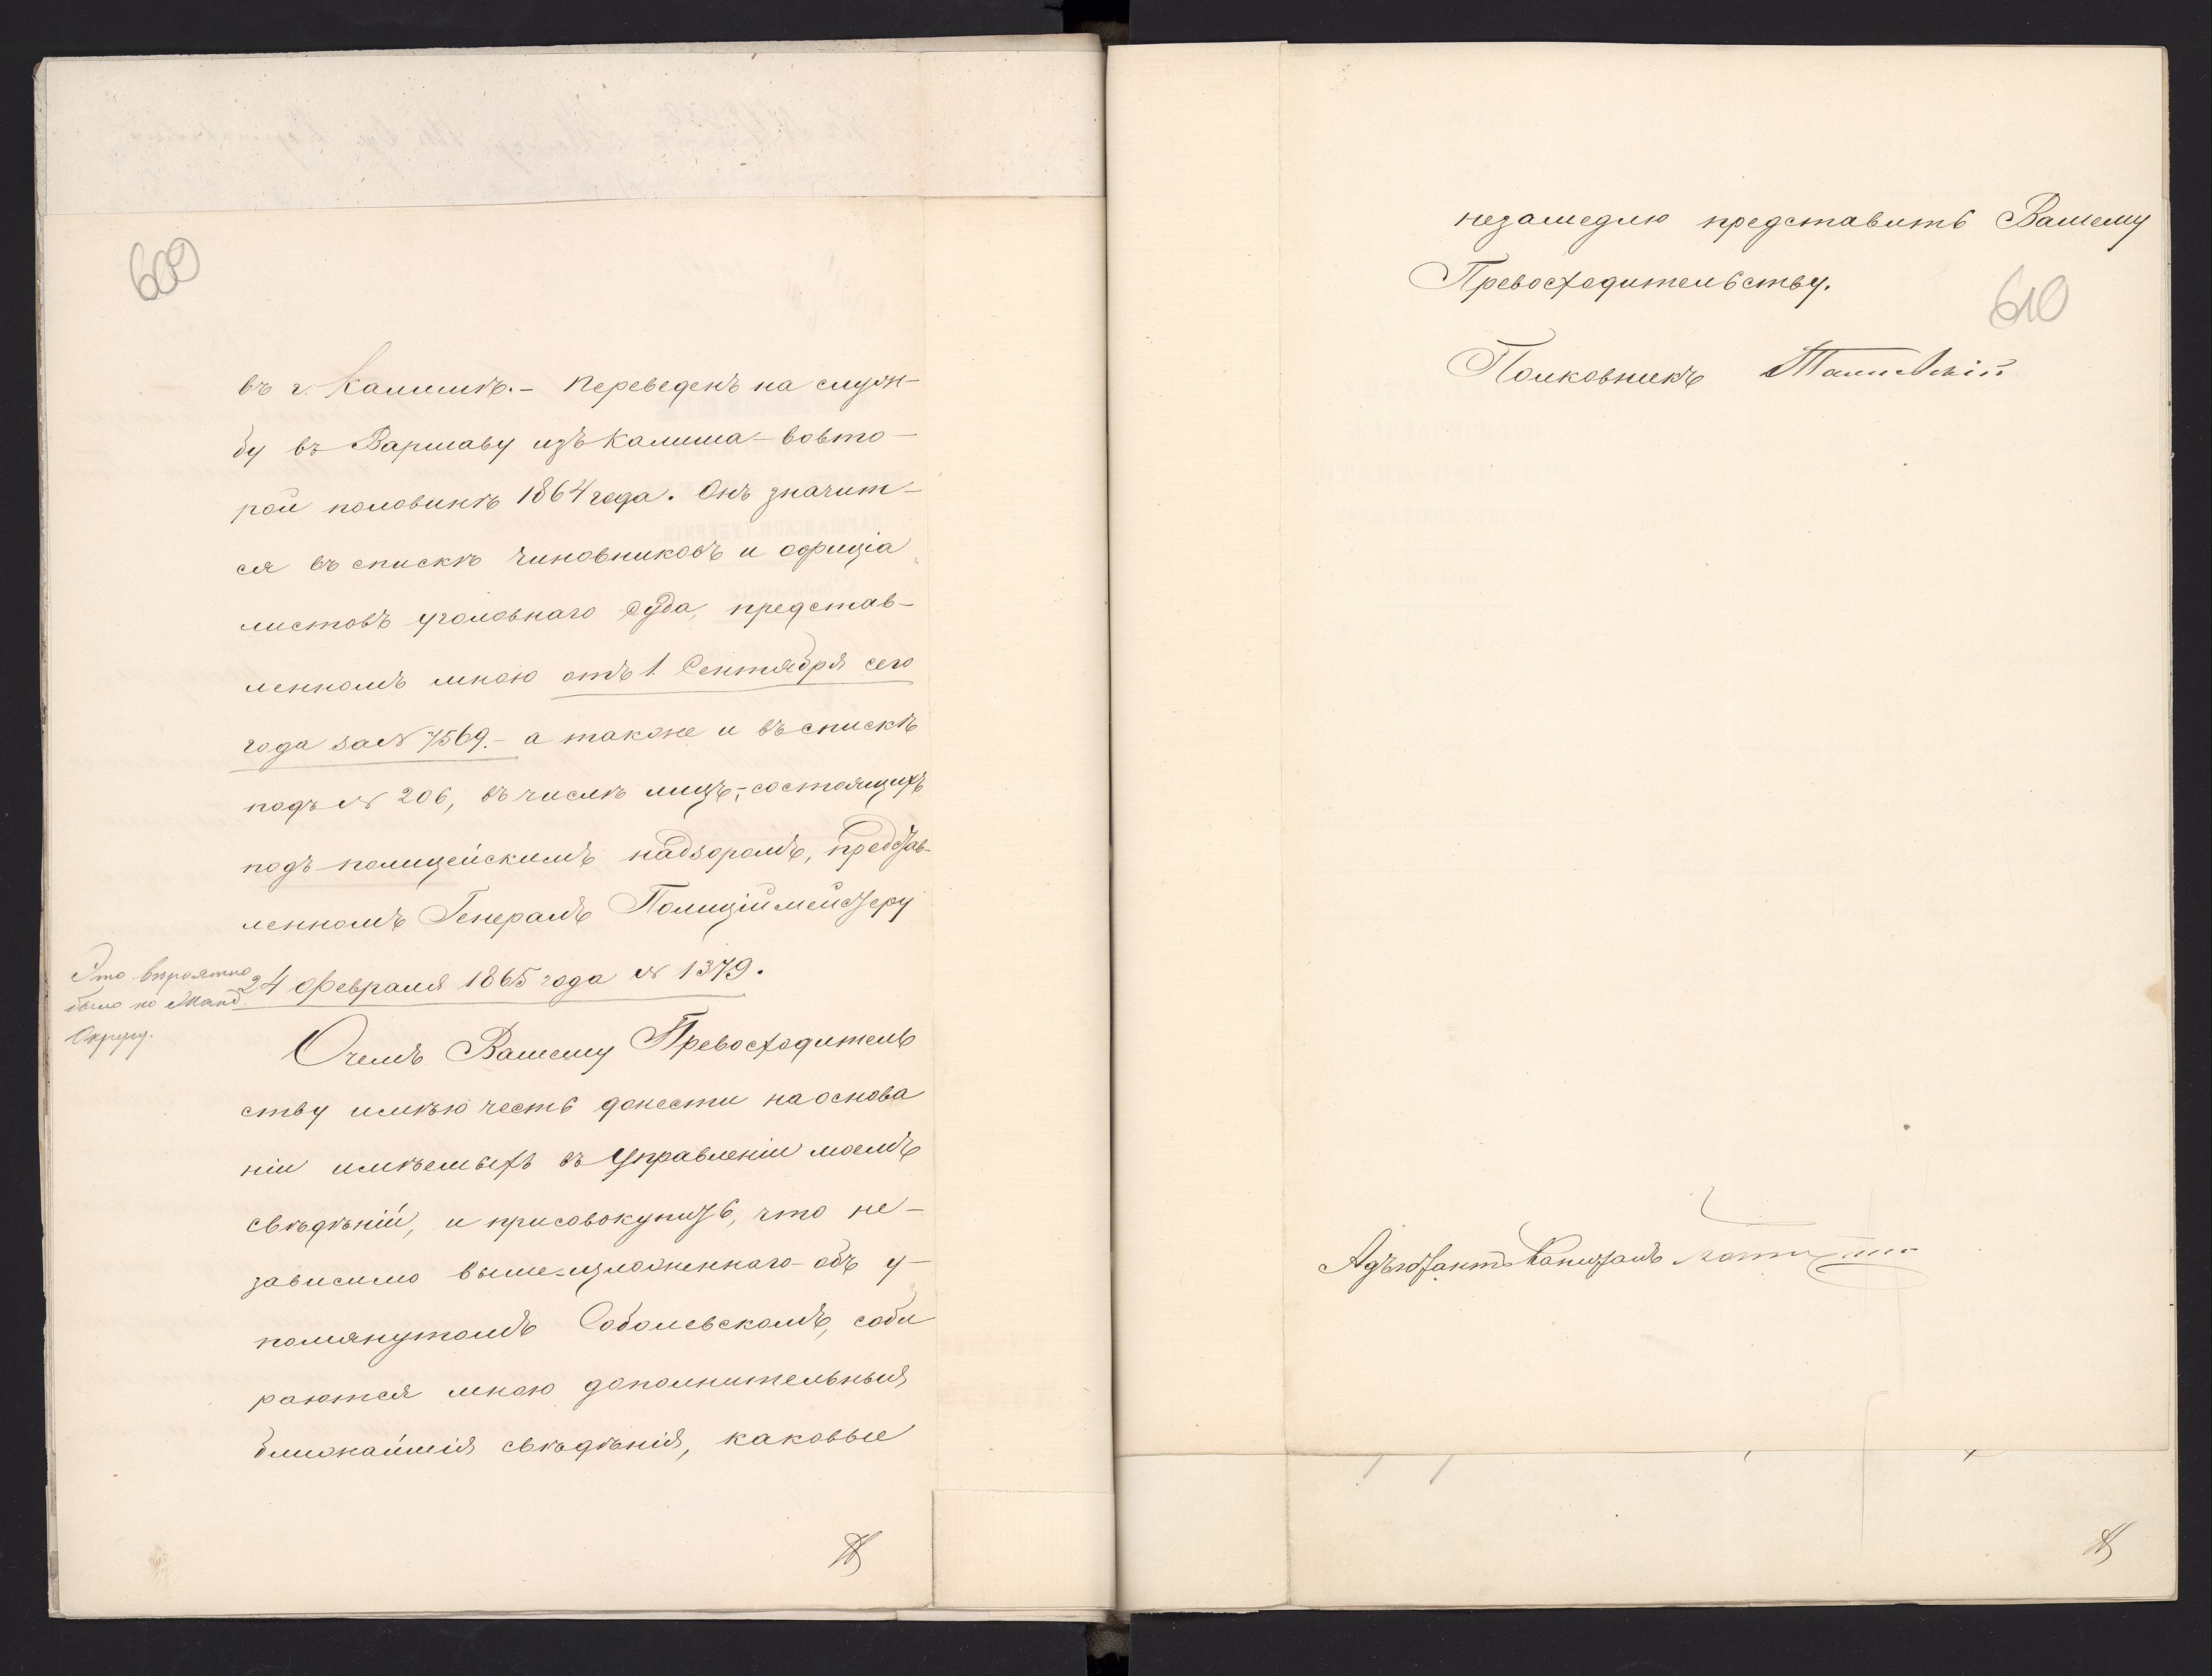 609
въ г. Калишѣ. – Переведенъ на служ-
бу въ Варшаву изъ Калиша – во вто-
рой половинѣ 1864 года. Онъ значит-
ся въ спискѣ чиновниковъ и офиціа
листовъ уголовнаго Суда, представ-
ленномъ мною отъ 1 Сентября сего
года за № 7569. – а также и въ спискѣ
подъ № 206, въ числѣ лицъ, состоящихъ
подъ полицейскимъ надзоромъ, представ-
ленномъ Генералъ Полиціймейстеру
24 Февраля 1865 года № 1379.
Это вѣроятно
было по Манд.
Округу.
О чемъ Вашему Превосходитель
ству имѣю честь донести на основа
ніи имѣемыхъ въ Управленіи моемъ
свѣдѣній, и присовокупить, что не-
зависимо выше-изложеннаго объ у-
помянутомъ Соболевскомъ, соби
раются мною дополнительныя
ближайшія свѣдѣнія, каковые
незамедлю представить Вашему
Превосходительству.
610
Полковникъ
Адъютантъ Капитанъ